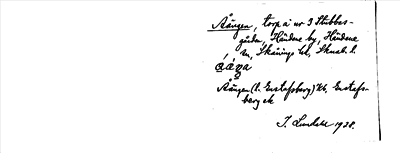 Aängen, torp å nr 3 Stubbe-
gården, Händene by, Händene
sn, Skånings hd, Skarab. l.
Aängen (l. Gustafsberg) Hk, Gustafs-
berg ek
J. Lundahl 1928.